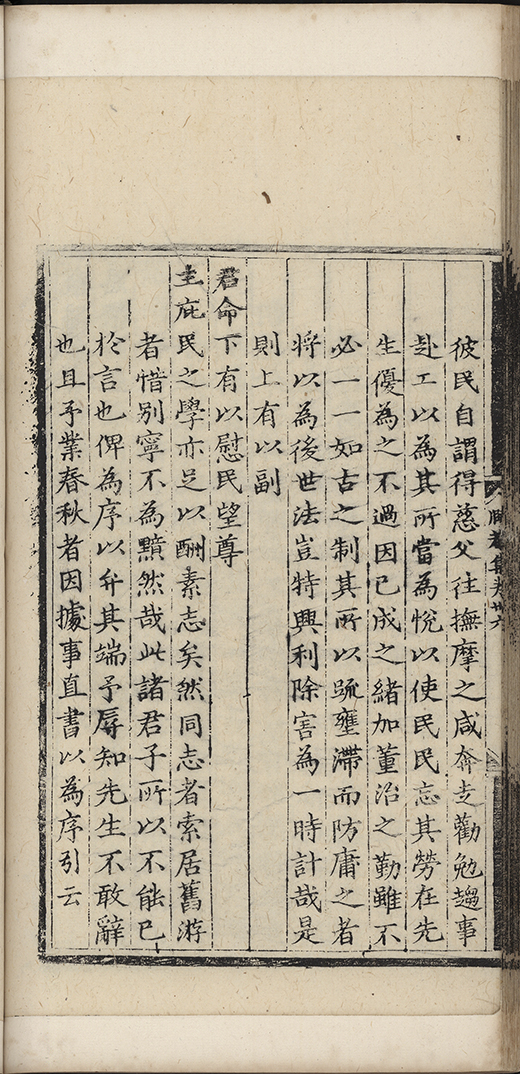 彼民自謂得慈父往撫摩之咸奔走勸勉趨事
赴工以為其所當為悅以使民民忘其勞在先
生優為之不過因已成之緒加董治之勤雖不
必一一如古之制其所以疏壅滯而防庸之者
将以為後世法豈特興利除害為一時計哉是
則上有以副
君命下有以慰民望尊
主庇民之學亦足以酬素志矣然同志者索居舊游
者惜别寧不為黯然哉此諸君子所以不能已
於言也俾為序以弁其端予辱知先生不敢辭
也且予業春秋者因據事直書以為序引云